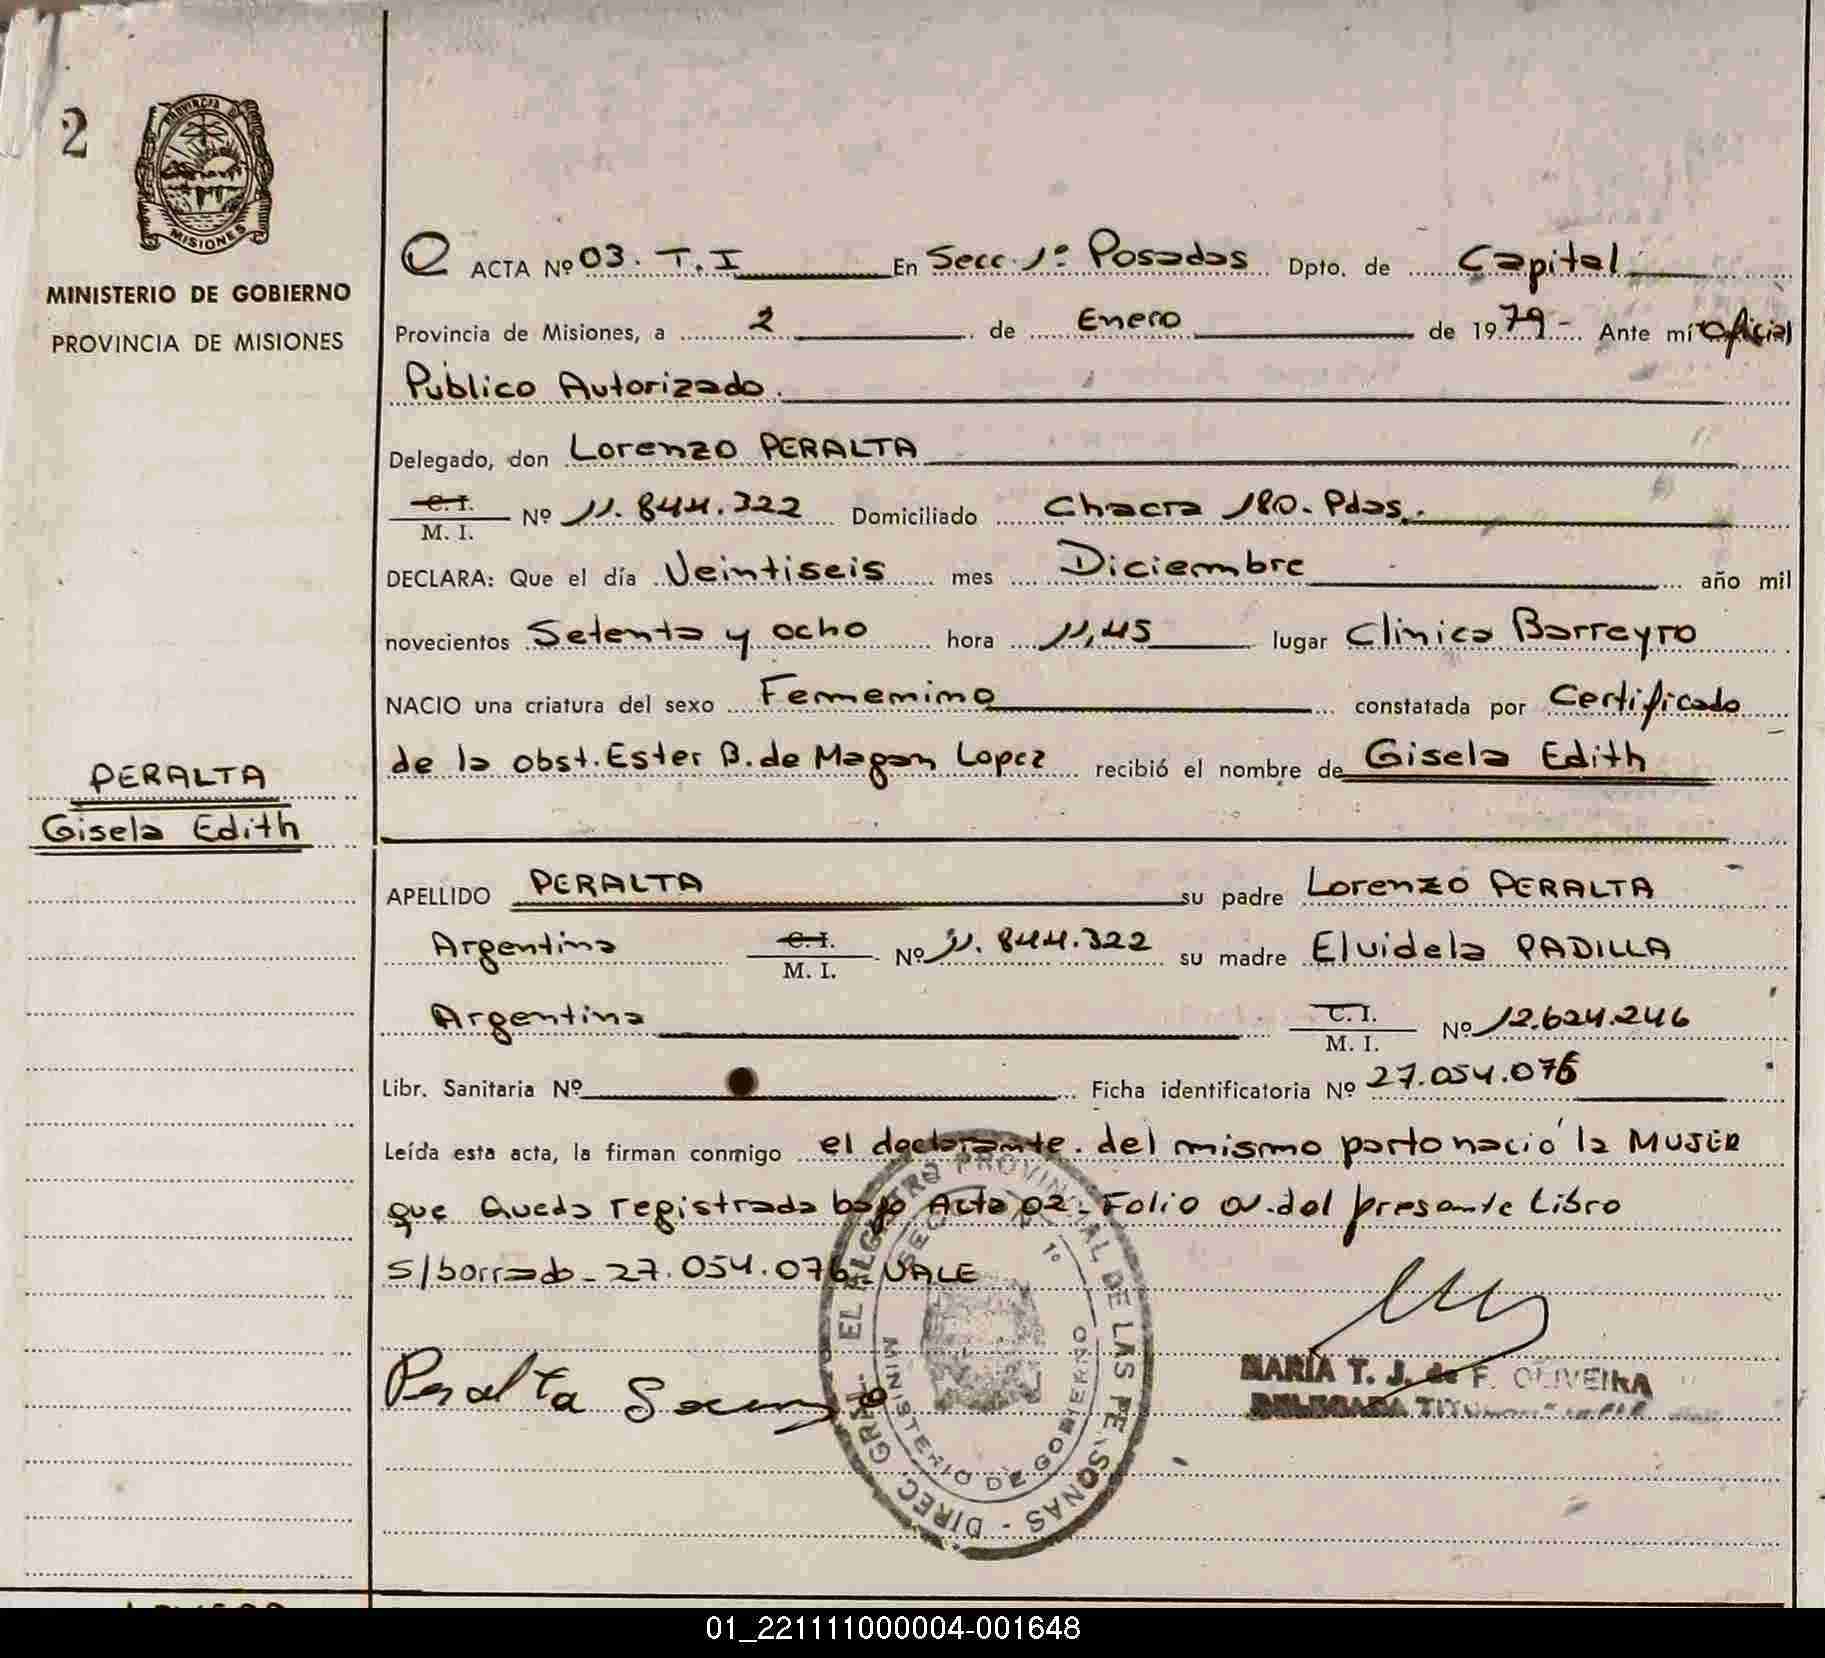 2
PROVINCIA D
MISIONES
MINISTERIO DE GOBIERNO
PROVINCIA DE MISIONES
PERALTA
Gisela Edith
ACTA Nº 03. T. I En Secc. 1º Posadas Dpto. de Capital
Provincia de Misiones, a 2 de Enero de 1979- Ante mí Oficial
Publico Autorizado.
Delegado, don Lorenzo PERALTA
C. I.
M. I. Nº 11.844.322 Domiciliado Chacra 180. Pdas.
DECLARA: Que el día Veintiseis mes Diciembre año mil
novecientos Setenta y ocho hora 11,45 lugar Clinica Barreyro
NACIO una criatura del sexo Fememino constatada por Certificado
de la obst. Ester B. de Magan Lopez recibió el nombre de Gisela Edith
APELLIDO PERALTA su padre Lorenzo PERALTA
Argentina C. I. M. I. Nº 11.844.322 su madre Elvidela PADILLA
Argentina C. I. M. I. Nº 12.624.246
Libr. Sanitaria Nº Ficha identificatoria Nº 27.054.076
Leída esta acta, la firman conmigo el declarante. del mismo parto nació la MUJER
que Queda registrada bajo Acta 02- Folio 01. del presente Libro
s/borrado- 27.054.076- VALE
Peralta
DIREC. GRAL. EL REGISTRO PROVINCIAL DE LAS PERSONAS -
SECCION 1º
MINISTERIO DE GOBIERNO
MARIA T. J. de F. OLIVEIRA
DELEGADA
01_221111000004-001648